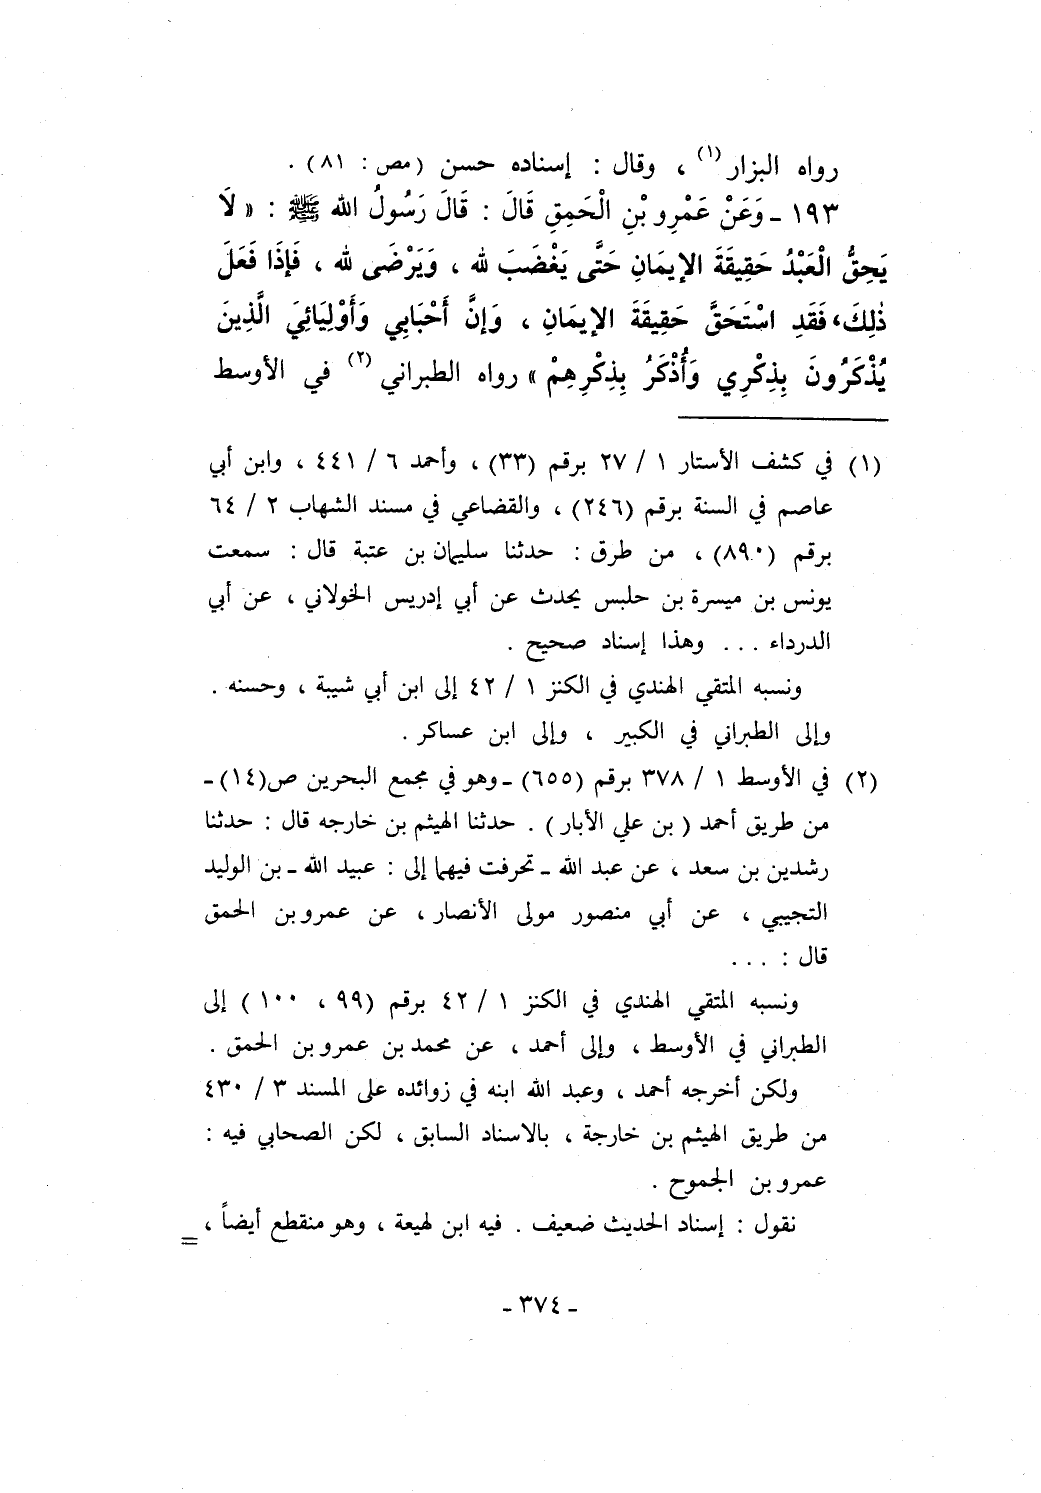 رواه البزار (١) ، وقال : إسناده حسن (مص : ٨١) .
١٩٣ - وَعَنْ عَمْرِو بْنِ الْحَمِقِ قَالَ : قَالَ رَسُولُ الله ﷺ : « لَا
يَحِقُّ الْعَبْدُ حَقِيقَةَ الإيمَانِ حَتَّى يَغْضَبَ لله ، وَيَرْضَى لله ، فَإذَا فَعَلَ
ذٰلِكَ، فَقَدِ اسْتَحَقَّ حَقِيقَةَ الإيمَانِ ، وَإنَّ أَحْبَابِي وَأَوْلِيَائِيَ الَّذِينَ
يُذْكَرُونَ بِذِكْرِي وَأُذْكَرُ بِذِكْرِهِمْ » رواه الطبراني (٢) في الأوسط
(١) في كشف الأستار ١ / ٢٧ برقم (٣٣) ، وأحمد ٦ / ٤٤١ ، وابن أبي
عاصم في السنة برقم (٢٤٦) ، والقضاعي في مسند الشهاب ٢ / ٦٤
برقم (٨٩٠) ، من طرق : حدثنا سليمان بن عتبة قال : سمعت
يونس بن ميسرة بن حلبس يحدث عن أبي إدريس الخولاني ، عن أبي
الدرداء ... وهذا إسناد صحيح .
ونسبه المتقي الهندي في الكنز ١ / ٤٢ إلى ابن أبي شيبة ، وحسنه .
وإلى الطبراني في الكبير ، وإلى ابن عساكر .
(٢) في الأوسط ١ / ٣٧٨ برقم (٦٥٥) - وهو في مجمع البحرين ص(١٤) -
من طريق أحمد ( بن علي الأبار ) . حدثنا الهيثم بن خارجه قال : حدثنا
رشدين بن سعد ، عن عبد الله - تحرفت فيهما إلى : عبيد الله - بن الوليد
التجيبي ، عن أبي منصور مولى الأنصار ، عن عمرو بن الحمق
قال : ...
ونسبه المتقي الهندي في الكنز ١ / ٤٢ برقم (٩٩ ، ١٠٠ ) إلى
الطبراني في الأوسط ، وإلى أحمد ، عن محمد بن عمرو بن الحمق .
ولكن أخرجه أحمد ، وعبد الله ابنه في زوائده على المسند ٣ / ٤٣٠
من طريق الهيثم بن خارجة ، بالاسناد السابق ، لكن الصحابي فيه :
عمرو بن الجموح .
نقول : إسناد الحديث ضعيف . فيه ابن لهيعة ، وهو منقطع أيضاً ، =
- ٣٧٤ -